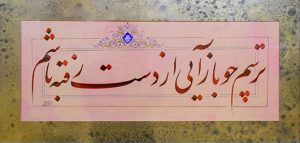 ترسم چو بازآیی از دست رفته باشم